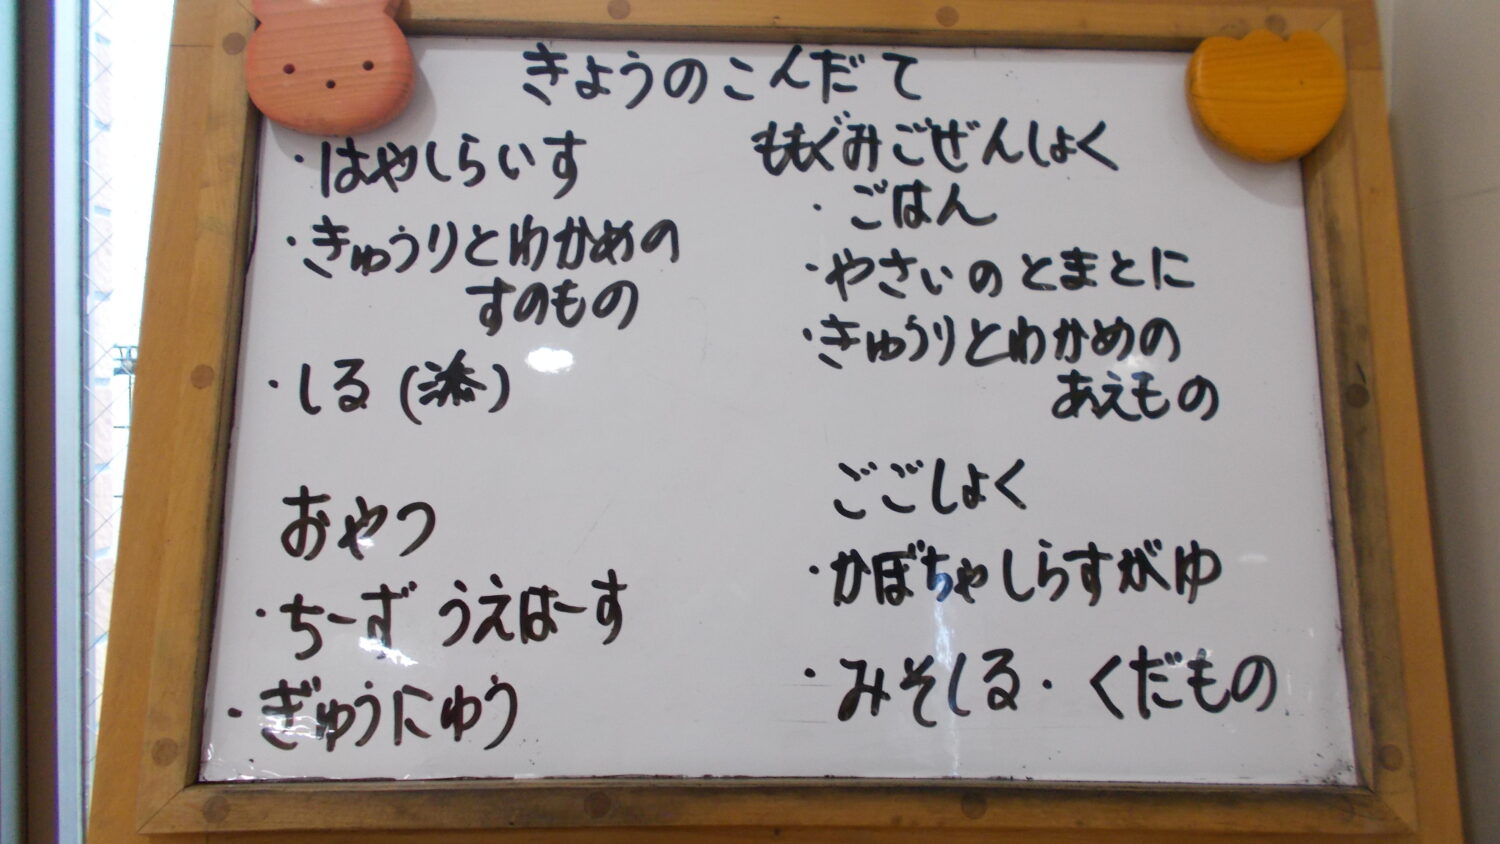 きょうのこんだて
・はやしらいす
・きゅうりとわかめの
すのもの
・しる(添)
おやつ
・ちーず うえはーす
・ぎゅうにゅう
ももぐみごぜんしょく
・ごはん
・やさいのとまとに
・きゅうりとわかめの
あえもの
ごごしょく
・かぼちゃしらすがゆ
・みそしる・くだもの